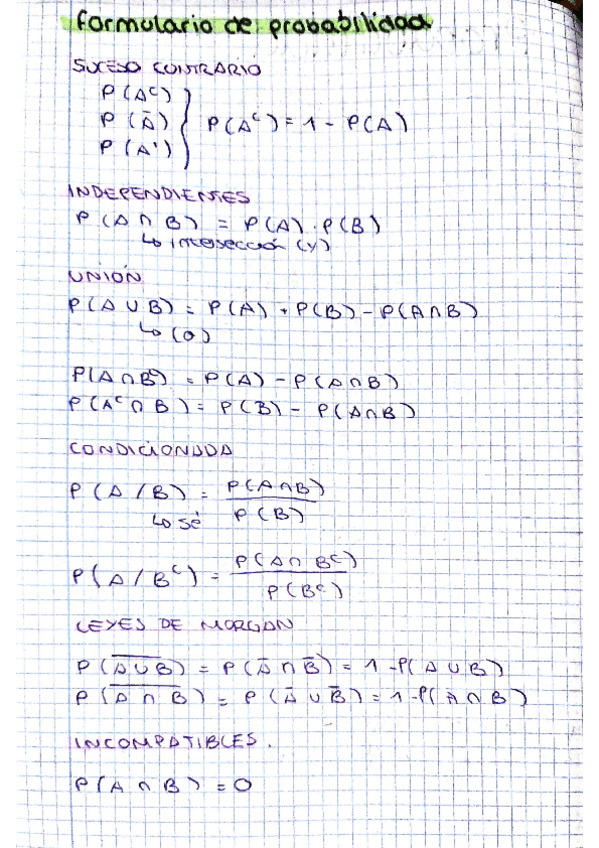 formulario de probabilidad
SUCESO CONTRARIO
P(Aᶜ)
P(Ā) } P(Aᶜ) = 1 - P(A)
P(A')
INDEPENDIENTES
P(A ∩ B) = P(A) · P(B)
↳ intersección (y)
UNIÓN
P(A ∪ B) = P(A) + P(B) - P(A∩B)
↳ (o)
P(A∩Bᶜ) = P(A) - P(A∩B)
P(Aᶜ∩B) = P(B) - P(A∩B)
CONDICIONADA
P(A/B) = P(A∩B) / P(B)
↳ sé
P(A/Bᶜ) = P(A∩Bᶜ) / P(Bᶜ)
LEYES DE MORGAN
P(A̅ ̅∪̅ ̅B̅) = P(Ā∩B̅) = 1 - P(A∪B)
P(A̅ ̅∩̅ ̅B̅) = P(Ā∪B̅) = 1 - P(A∩B)
INCOMPATIBLES.
P(A∩B) = 0